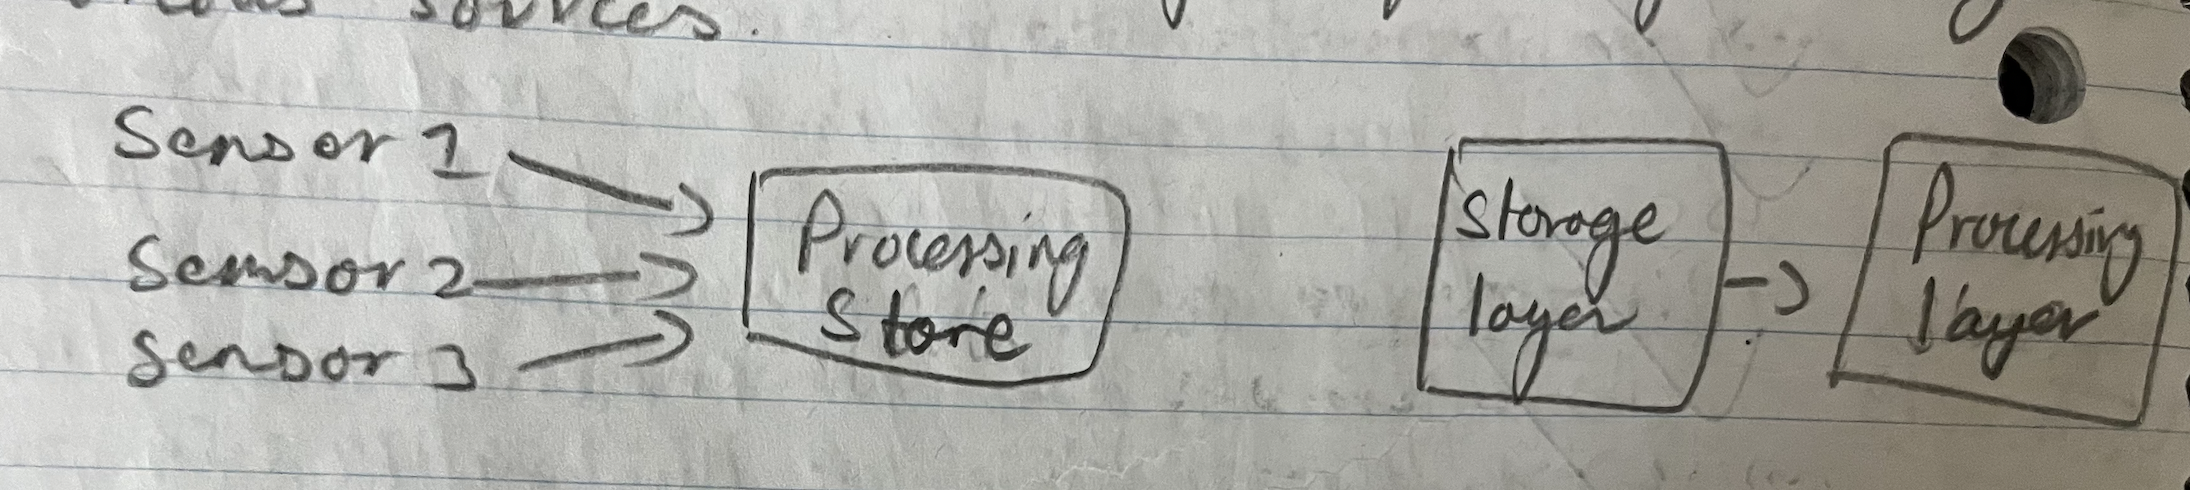 sources.
Sensor 1
Sensor 2
Sensor 3
Processing
Store
Storage
layer
Processing
layer